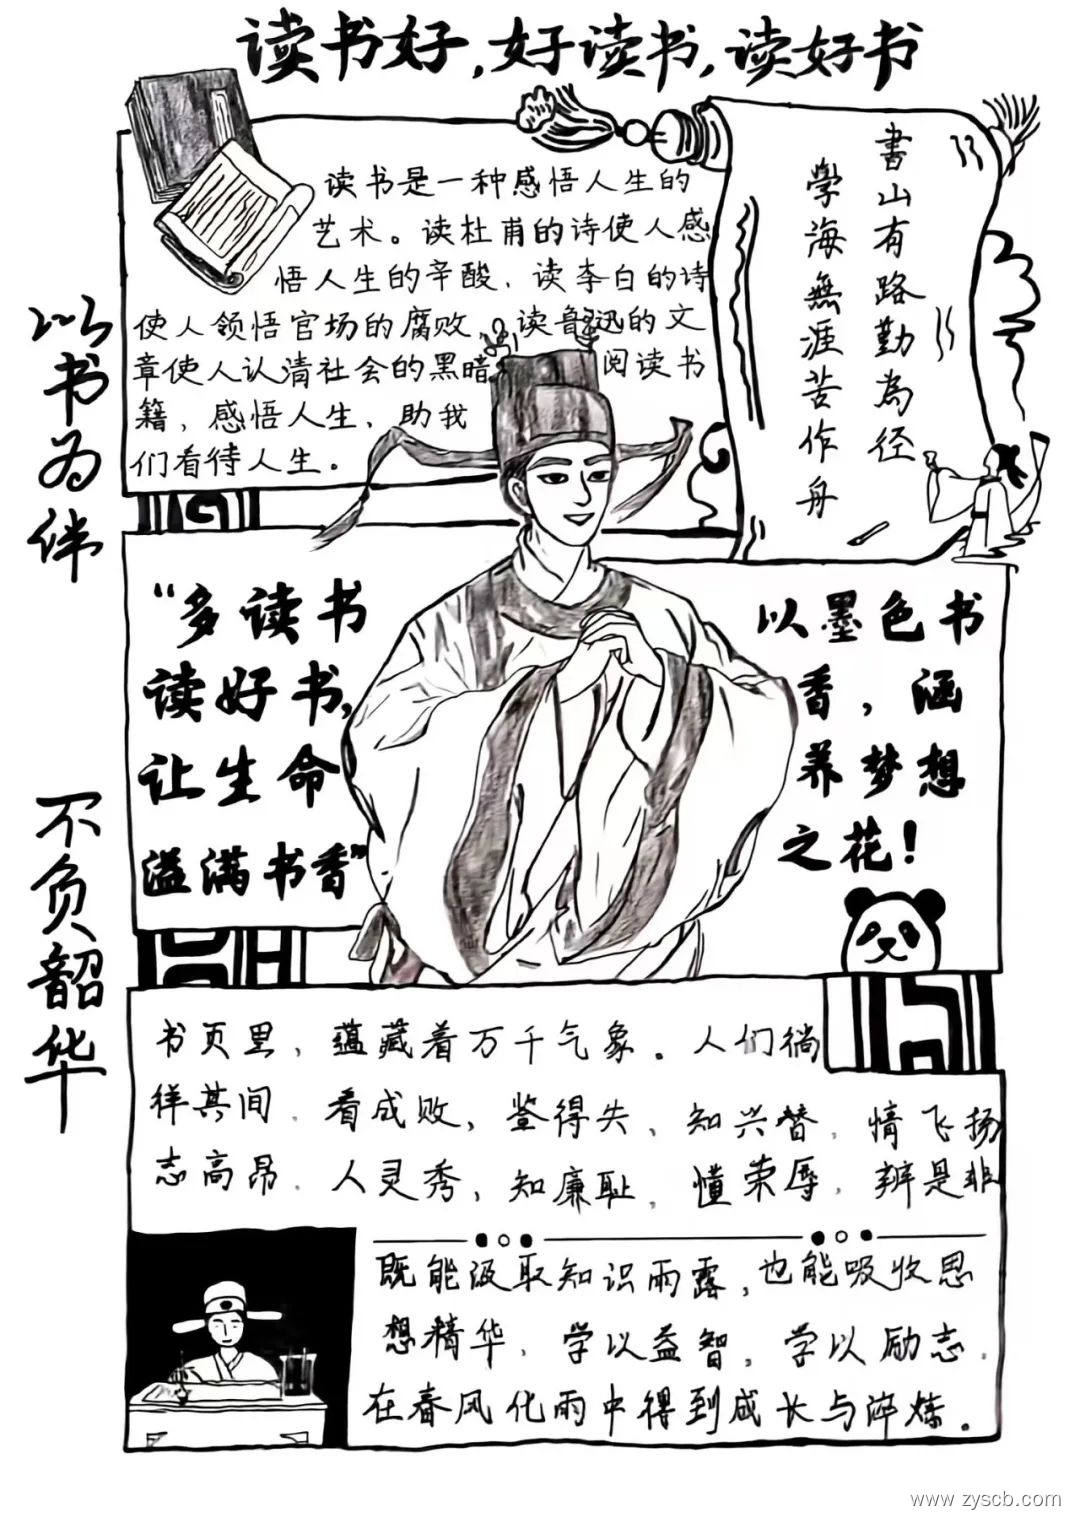 读书好,好读书,读好书
读书是一种感悟人生的
艺术。读杜甫的诗使人感
悟人生的辛酸,读李白的诗
使人领悟官场的腐败,读鲁迅的文
章使人认清社会的黑暗,阅读书
籍,感悟人生,助我
们看待人生。
書山有路勤為径
学海無涯苦作舟
以书为伴
不负韶华
“多读书
读好书,
让生命
溢满书香”
以墨色书
香,涵
养梦想
之花!
书页里,蕴藏着万千气象。人们徜
徉其间,看成败,鉴得失,知兴替,情飞扬
志高昂,人灵秀,知廉耻,懂荣辱,辨是非
既能汲取知识雨露,也能吸收思
想精华,学以益智,学以励志,
在春风化雨中得到成长与淬炼。
www.zyscb.com